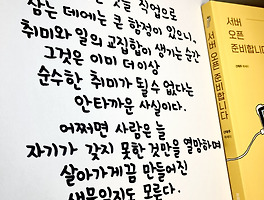 직업으로
삼는 데에는 큰 함정이 있으니,
취미와 일의 교집합이 생기는 순간
그것은 이미 더이상
순수한 취미가 될수 없다는
안타까운 사실이다.
어쩌면 사람은 늘
자기가 갖지 못한 것만을 열망하며
살아가게끔 만들어진
생물일지도 모른다.
서버
오픈
준비합니다
서버 오픈 준비합니다